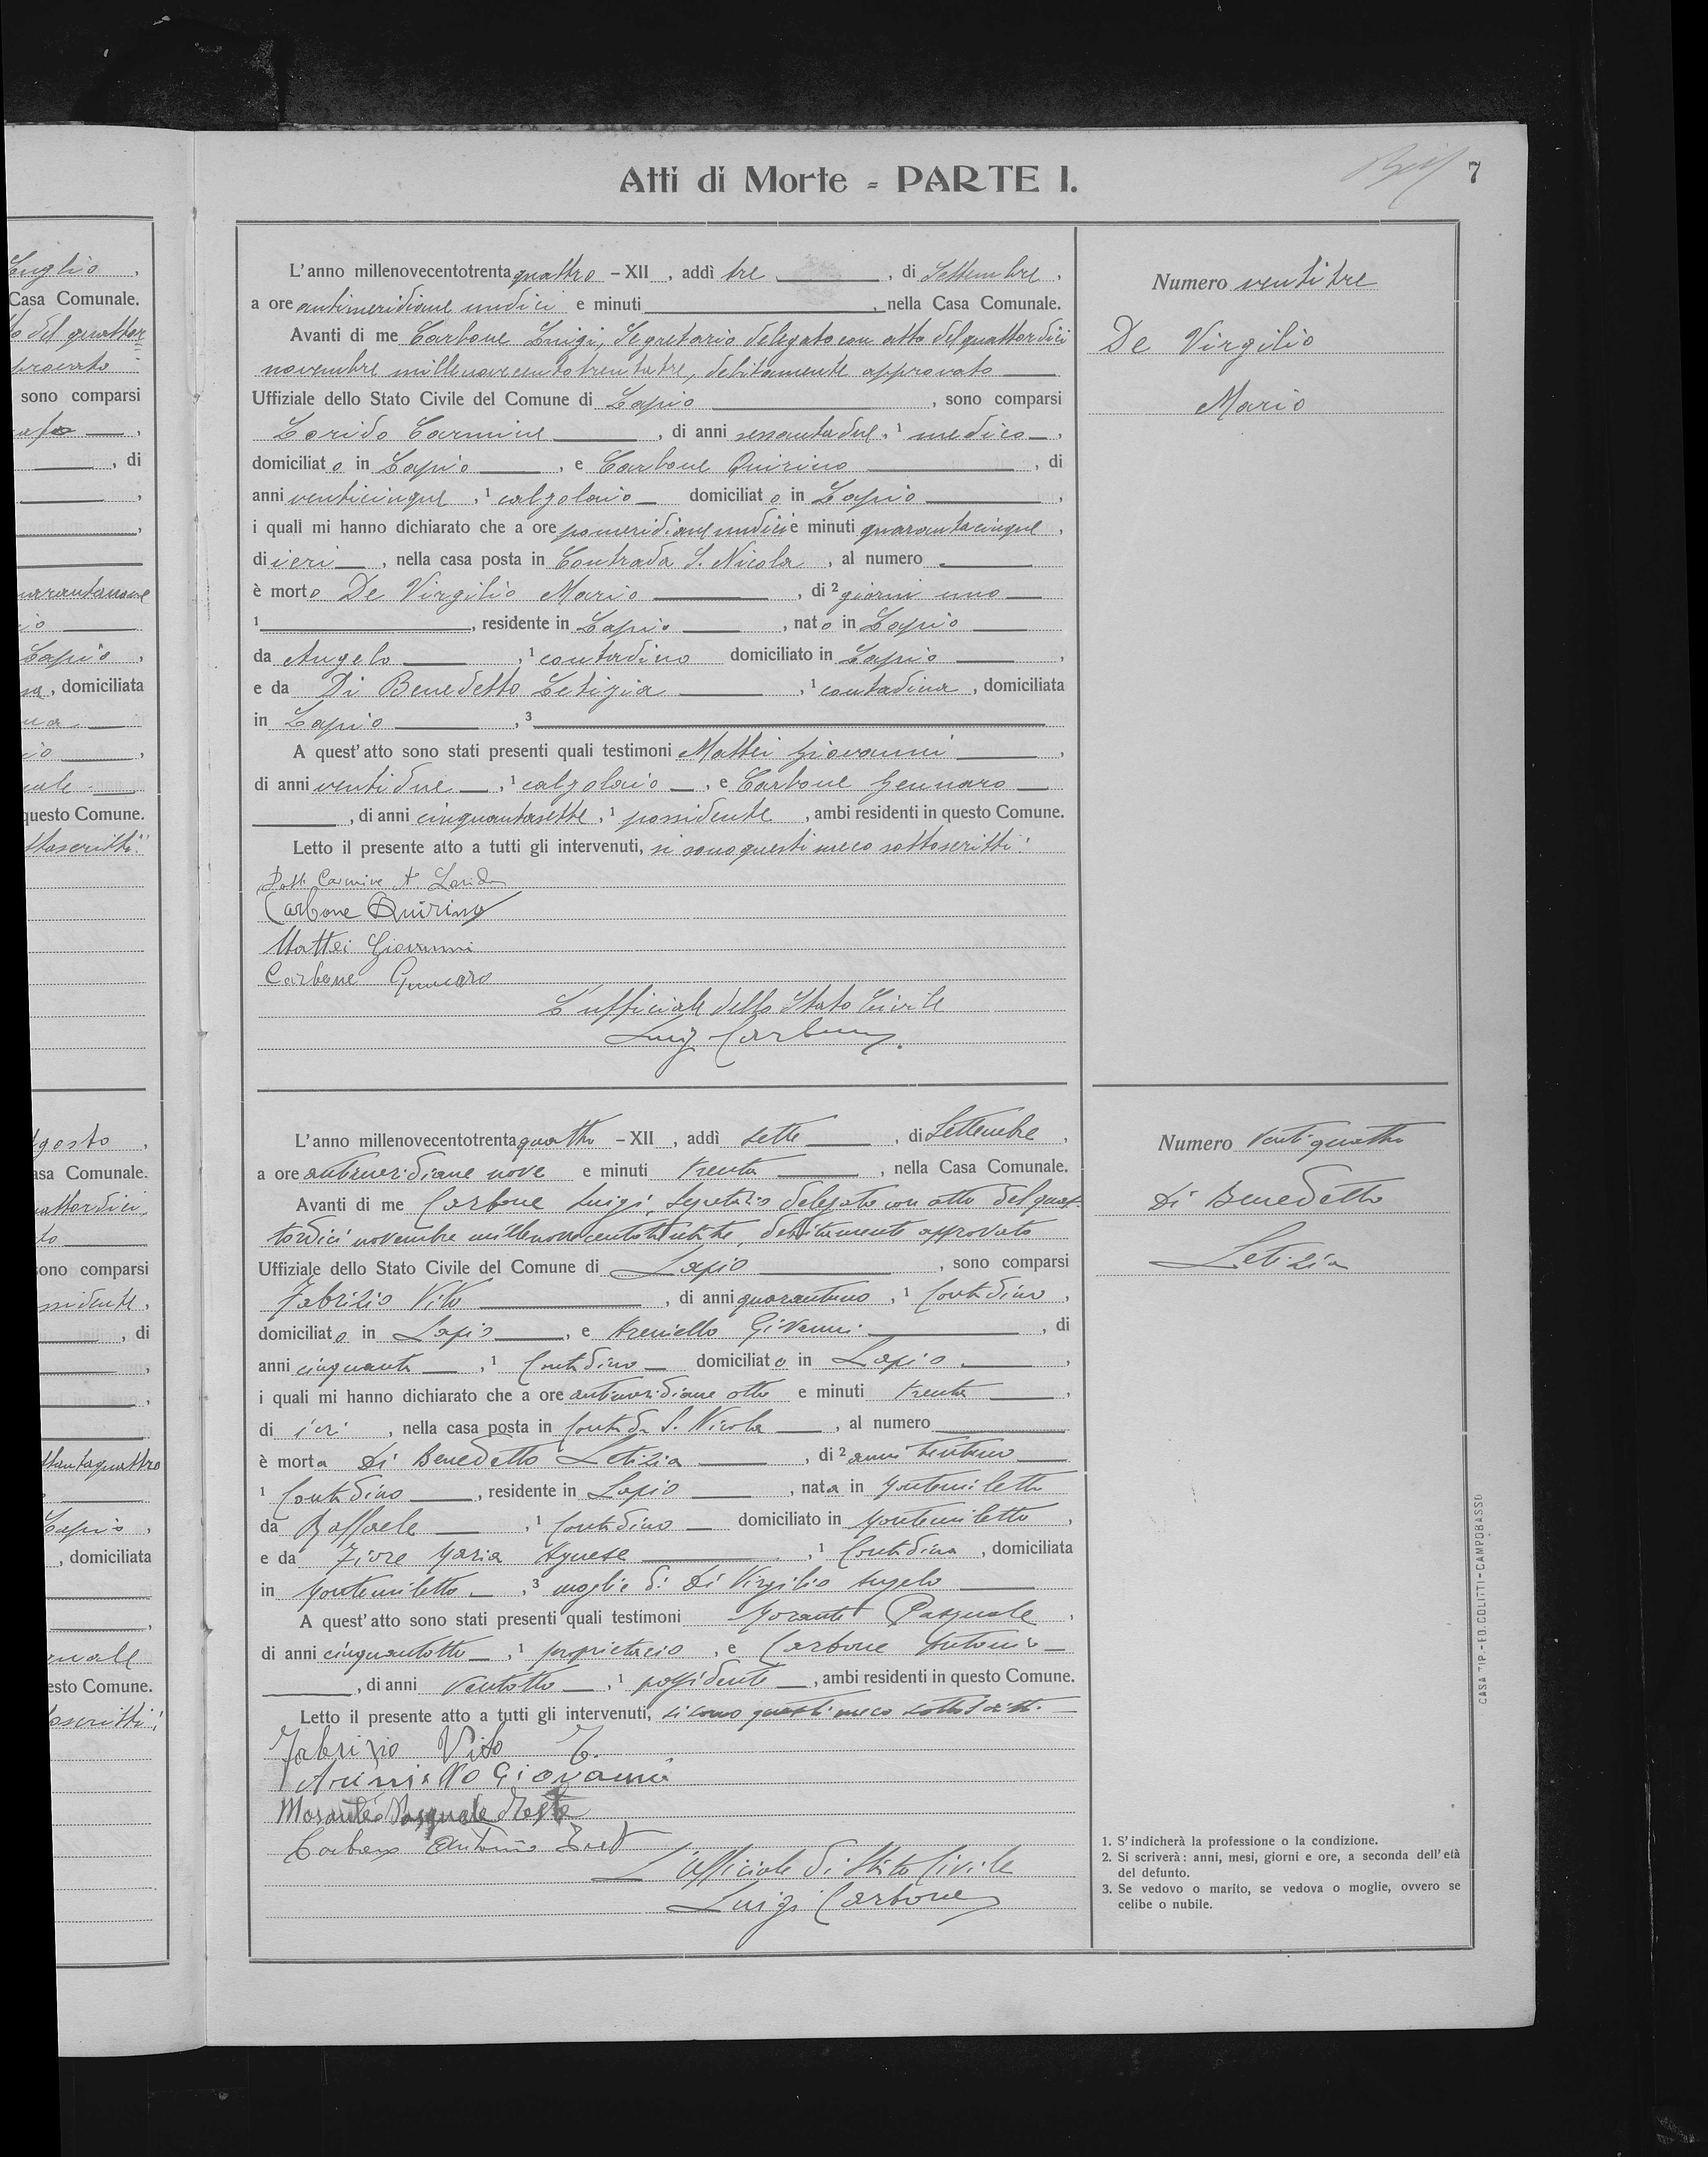 Luglio ,
Casa Comunale.
to del quattor
provato
sono comparsi
, di
,
,
quarantanove
Lapio ,
, domiciliata
,
questo Comune.
ttoscritti:
Agosto ,
Casa Comunale.
attordici
to
sono comparsi
ssidente ,
, di
,
,
ttantaquattro
Lapio ,
, domiciliata
,
esto Comune.
oscritti:
Atti di Morte = PARTE I.
7
L'anno millenovecentotrentaquattro - XII , addì tre , di Settembre ,
a ore antimeridiane undici e minuti , nella Casa Comunale.
Avanti di me Carbone Luigi, Segretario delegato con atto del quattordici
novembre millenovecentotrentatre, debitamente approvato
Uffiziale dello Stato Civile del Comune di Lapio , sono comparsi
Lorido Carmine , di anni sessantadue , 1 medico ,
domiciliato in Lapio , e Carbone Quirino , di
anni venticinque , 1 calzolaio domiciliato in Lapio ,
i quali mi hanno dichiarato che a ore pomeridiane undici e minuti quarantacinque ,
di ieri , nella casa posta in Contrada S. Nicola , al numero
è morto De Virgilio Mario , di 2 giorni uno
1 , residente in Lapio , nato in Lapio
da Angelo , 1 contadino domiciliato in Lapio ,
e da Di Benedetto Letizia , 1 contadina , domiciliata
in Lapio , 3
A quest'atto sono stati presenti quali testimoni Mattei Giovanni ,
di anni ventidue , 1 calzolaio , e Carbone Gennaro
, di anni cinquantasette , 1 possidente , ambi residenti in questo Comune.
Letto il presente atto a tutti gli intervenuti, si sono questi meco sottoscritti:
Dott. Carmine A. Lorido
Carbone Quirino
Mattei Giovanni
Carbone Gennaro
L'ufficiale dello Stato Civile
Luigi Carbone
Numero ventitre
De Virgilio
Mario
L'anno millenovecentotrentaquattro - XII , addì sette , di Settembre ,
a ore antimeridiane nove e minuti trenta , nella Casa Comunale.
Avanti di me Carbone Luigi, Segretario delegato con atto del quat-
tordici novembre millenovecentotrentatre, debitamente approvato
Uffiziale dello Stato Civile del Comune di Lapio , sono comparsi
Fabrizio Vito , di anni quarantuno , 1 Contadino ,
domiciliato in Lapio , e Areniello Giovanni , di
anni cinquanta , 1 Contadino domiciliato in Lapio ,
i quali mi hanno dichiarato che a ore antimeridiane otto e minuti trenta ,
di ieri , nella casa posta in Contrada S. Nicola , al numero
è morta Di Benedetto Letizia , di 2 anni trentuno
1 Contadino , residente in Lapio , nata in Montemiletto
da Raffaele , 1 Contadino domiciliato in Montemiletto ,
e da Fiore Maria Agnese , 1 Contadina , domiciliata
in Montemiletto , 3 moglie di Di Virgilio Angelo
A quest'atto sono stati presenti quali testimoni Morante Pasquale ,
di anni cinquantotto , 1 proprietario , e Carbone Antonio
, di anni ventotto , 1 possidente , ambi residenti in questo Comune.
Letto il presente atto a tutti gli intervenuti, si sono questi meco sottoscritti.
Fabrizio Vito T.
Areniello Giovanni
Morante Pasquale Teste
Carbone Antonio
L'ufficiale di Stato Civile
Luigi Carbone
Numero Ventiquattro
Di Benedetto
Letizia
1. S'indicherà la professione o la condizione.
2. Si scriverà: anni, mesi, giorni e ore, a seconda dell'età
del defunto.
3. Se vedovo o marito, se vedova o moglie, ovvero se
celibe o nubile.
CASA TIP.-ED. COLITTI-CAMPOBASSO